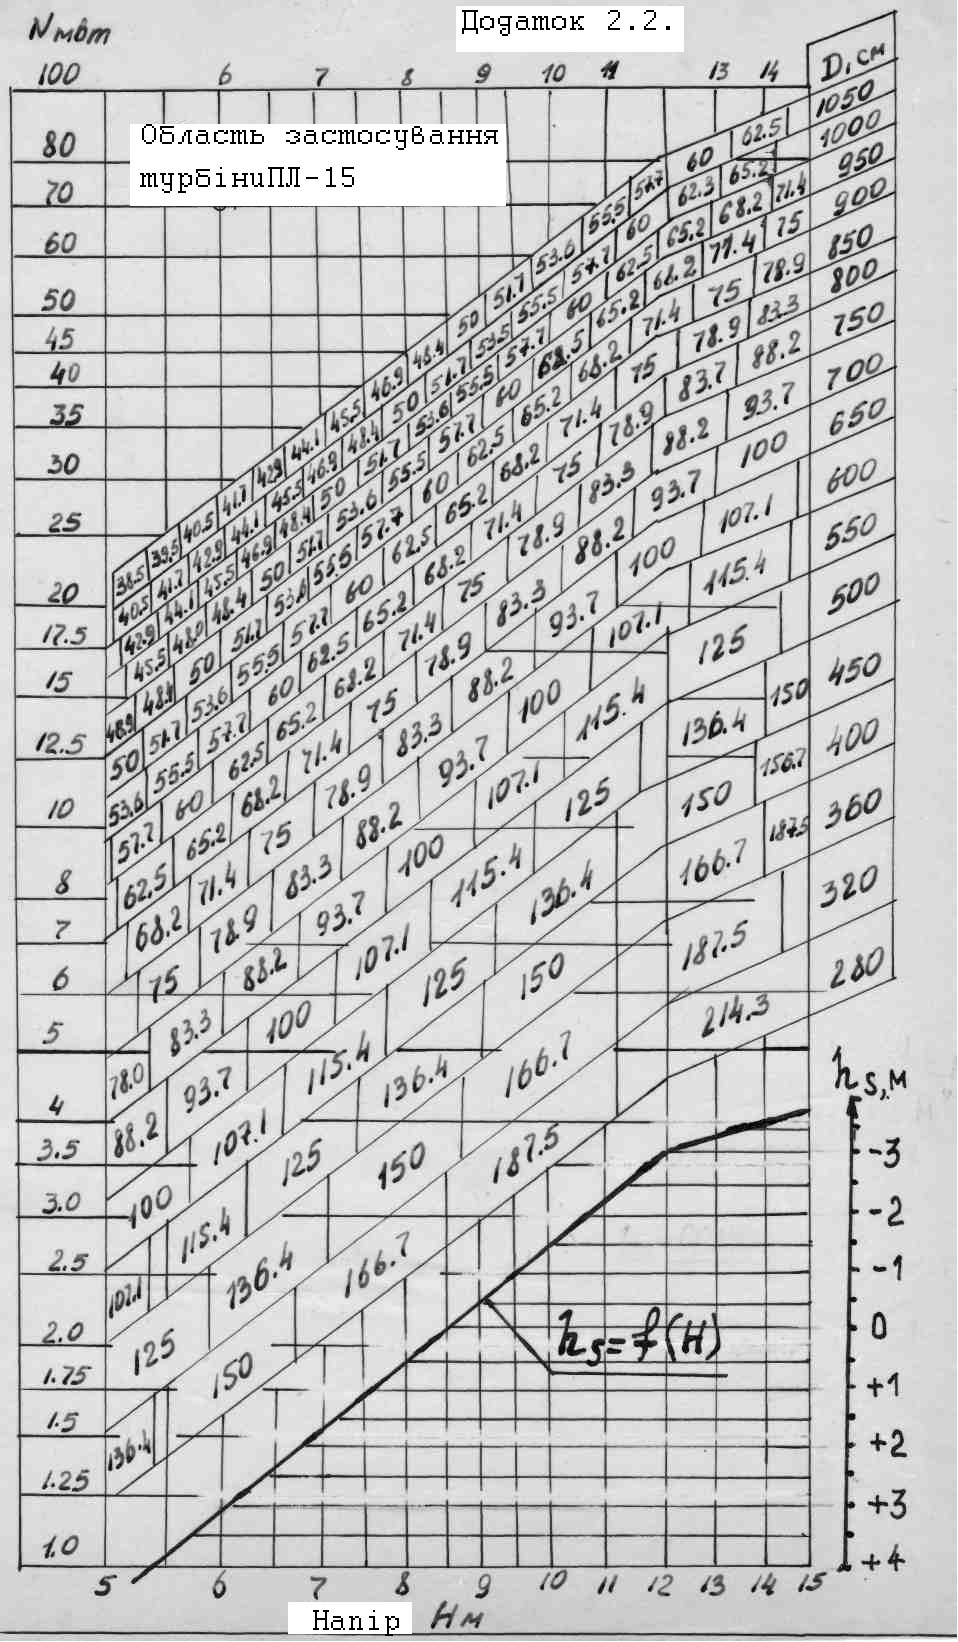 Додаток 2.2.
N мвт
100 6 7 8 9 10 11 13 14 D, см
Область застосування
турбіниПЛ-15
80
70
60
50
45
40
35
30
25
20
17.5
15
12.5
10
8
7
6
5
4
3.5
3.0
2.5
2.0
1.75
1.5
1.25
1.0
1050
1000
950
900
850
800
750
700
650
600
550
500
450
400
360
320
280
38.5 39.5 40.5 41.7 42.9 44.1 45.5 46.9 48.4 50 51.7 53.6 55.5 57.7 60 62.5
40.5 41.7 42.9 44.1 45.5 46.9 48.4 50 51.7 53.5 55.5 57.7 60 62.3 65.2
42.9 44.1 45.5 46.9 48.4 50 51.7 53.6 55.5 57.7 60 62.5 65.2 68.2 71.4
45.5 48.0 48.4 50 51.7 53.6 55.5 57.7 60 62.5 65.2 68.2 71.4 75
48.9 48.4 50 51.7 53.6 55.5 57.7 60 62.5 65.2 68.2 71.4 75 78.9
50 51.7 53.6 55.5 57.7 60 62.5 65.2 68.2 71.4 75 78.9 83.3
53.6 55.5 57.7 60 62.5 65.2 68.2 71.4 75 78.9 83.7 88.2
57.7 60 62.5 65.2 68.2 71.4 75 78.9 83.3 88.2 93.7
62.5 65.2 68.2 71.4 75 78.9 83.3 88.2 93.7 100
68.2 71.4 75 78.9 83.3 88.2 93.7 100 107.1
75 78.9 83.3 88.2 93.7 100 107.1 115.4
78.0 83.3 88.2 93.7 100 107.1 115.4 125
88.2 93.7 100 107.1 115.4 125 136.4 150
100 107.1 115.4 125 136.4 150 156.7
107.1 115.4 125 136.4 150 166.7 187.5
125 136.4 150 166.7 187.5
136.4 150 166.7 187.5 214.3
hs, м
-3
-2
-1
0
+1
+2
+3
+4
hs=f(H)
5 6 7 8 9 10 11 12 13 14 15
Напір Нм